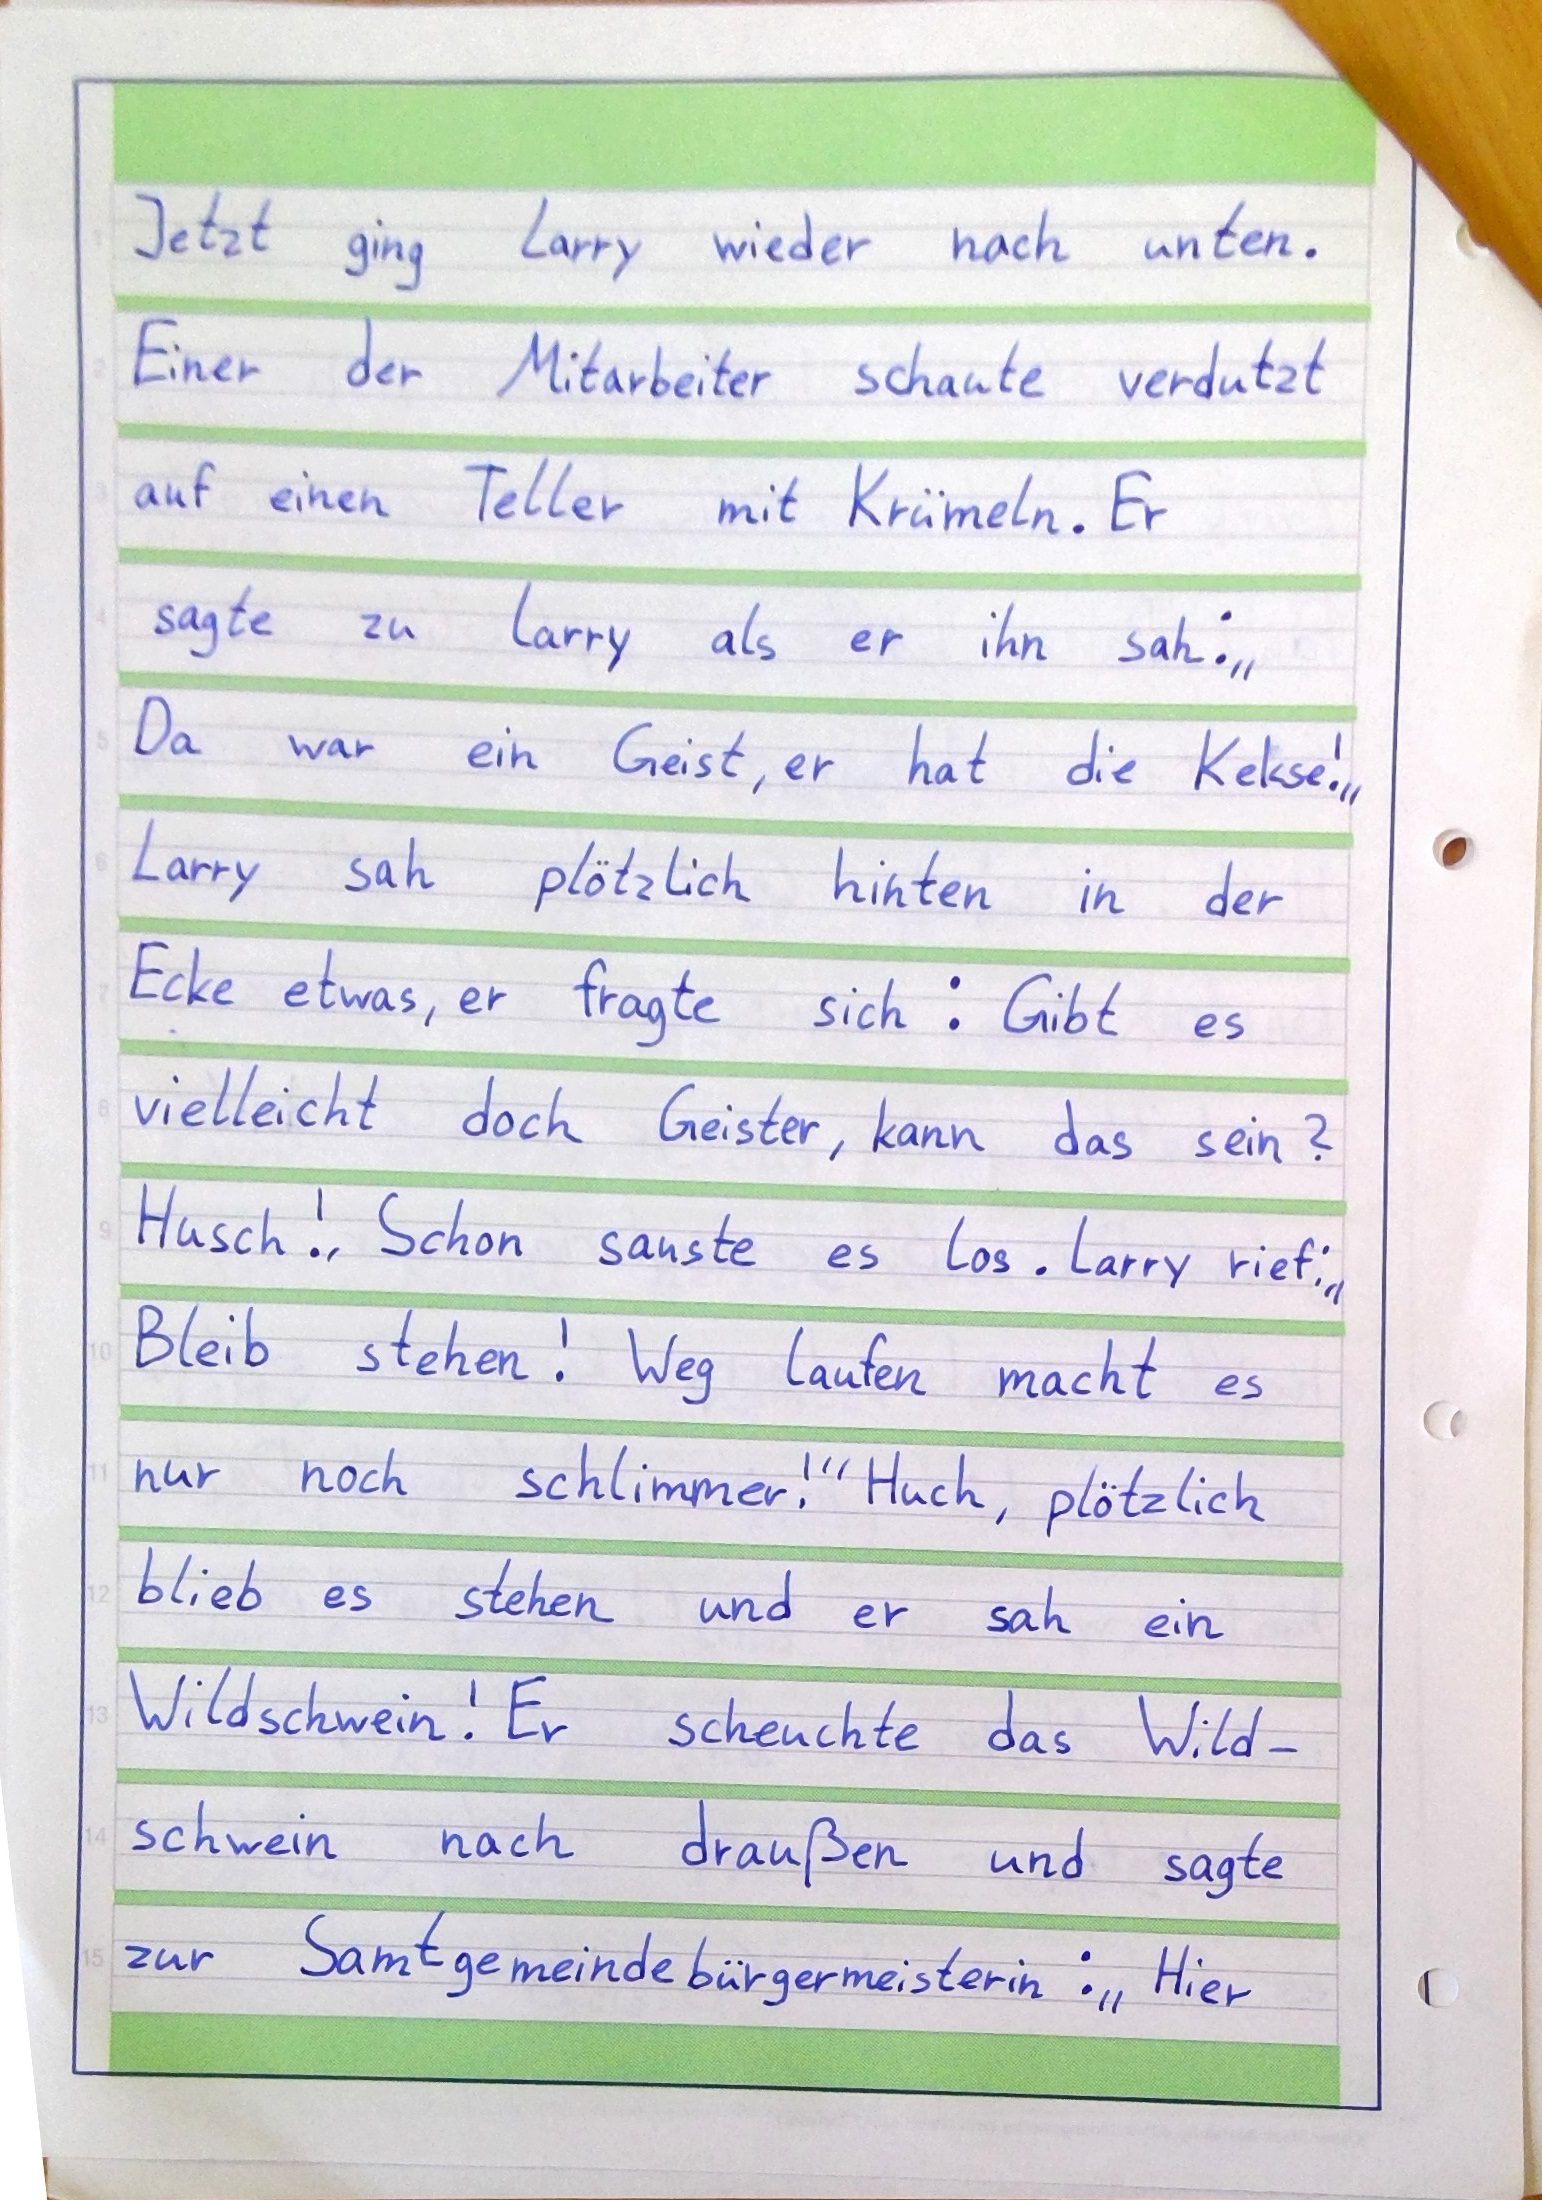 Jetzt ging Larry wieder nach unten.
Einer der Mitarbeiter schaute verdutzt
auf einen Teller mit Krümeln. Er
sagte zu Larry als er ihn sah:„
Da war ein Geist, er hat die Kekse!„
Larry sah plötzlich hinten in der
Ecke etwas, er fragte sich: Gibt es
vielleicht doch Geister, kann das sein?
Husch!„ Schon sauste es los. Larry rief:„
Bleib stehen! Weg laufen macht es
nur noch schlimmer!“ Huch, plötzlich
blieb es stehen und er sah ein
Wildschwein! Er scheuchte das Wild-
schwein nach draußen und sagte
zur Samtgemeindebürgermeisterin:„ Hier